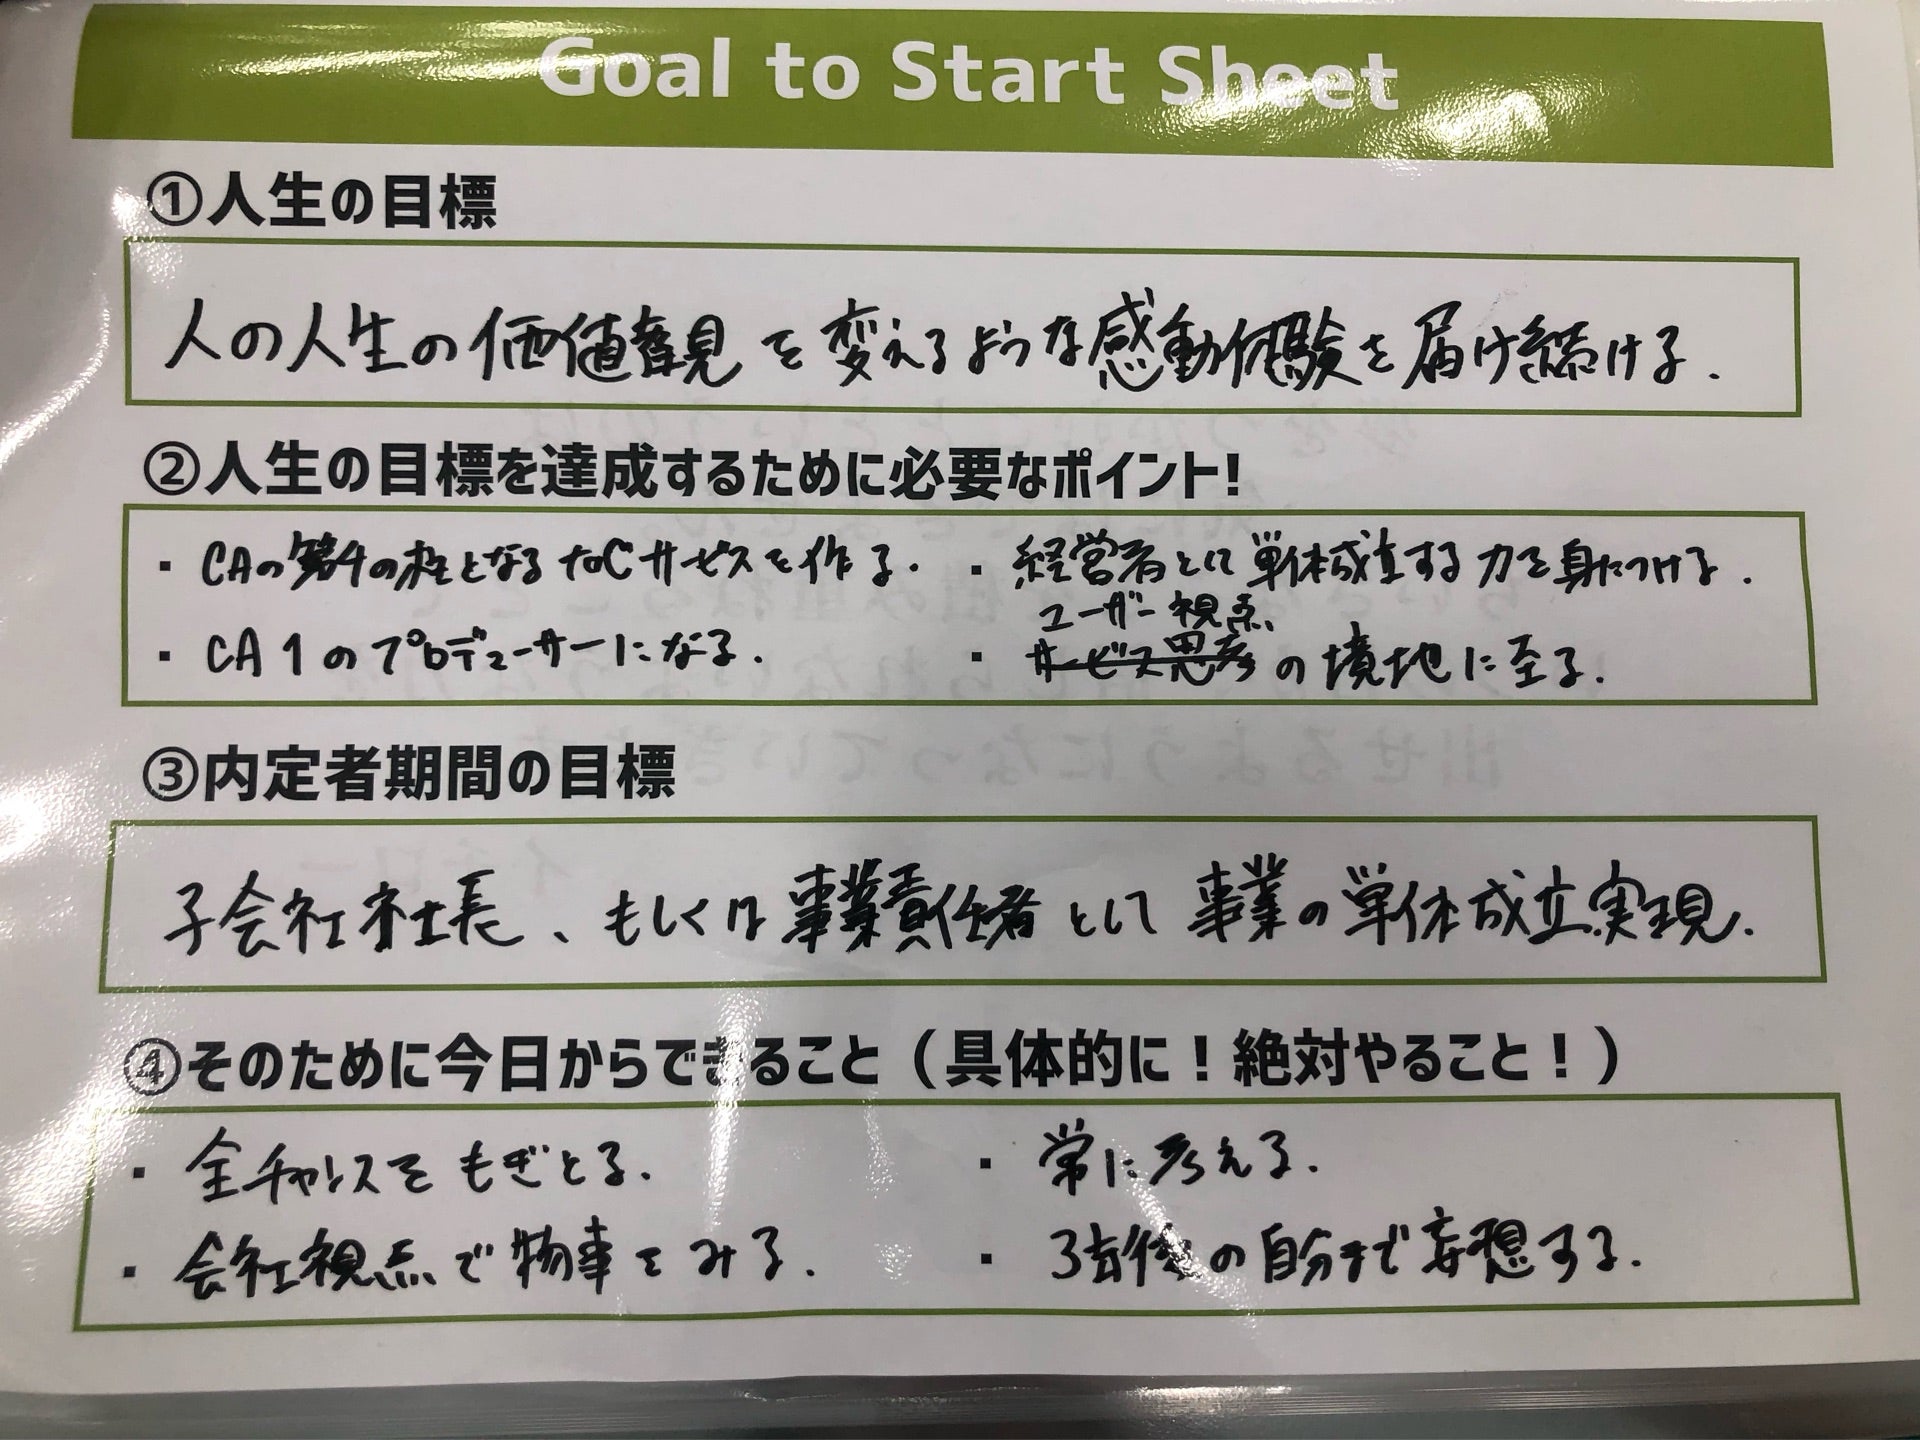 Goal to Start Sheet
①人生の目標
人の人生の価値観を変えるような感動体験を届け続ける.
②人生の目標を達成するために必要なポイント!
・CAの第4の柱となるtoCサービスを作る.
・CA1のプロデューサーになる.
・経営者として単体成立する力を身につける.
ユーザー視点
・サービス思考の境地に至る.
③内定者期間の目標
子会社社長、もしくは事業責任者として事業の単体成立実現.
④そのために今日からできること（具体的に！絶対やること！）
・全チャンスをもぎとる.
・会社視点で物事をみる.
・常に考える.
・3年後の自分まで妄想する.